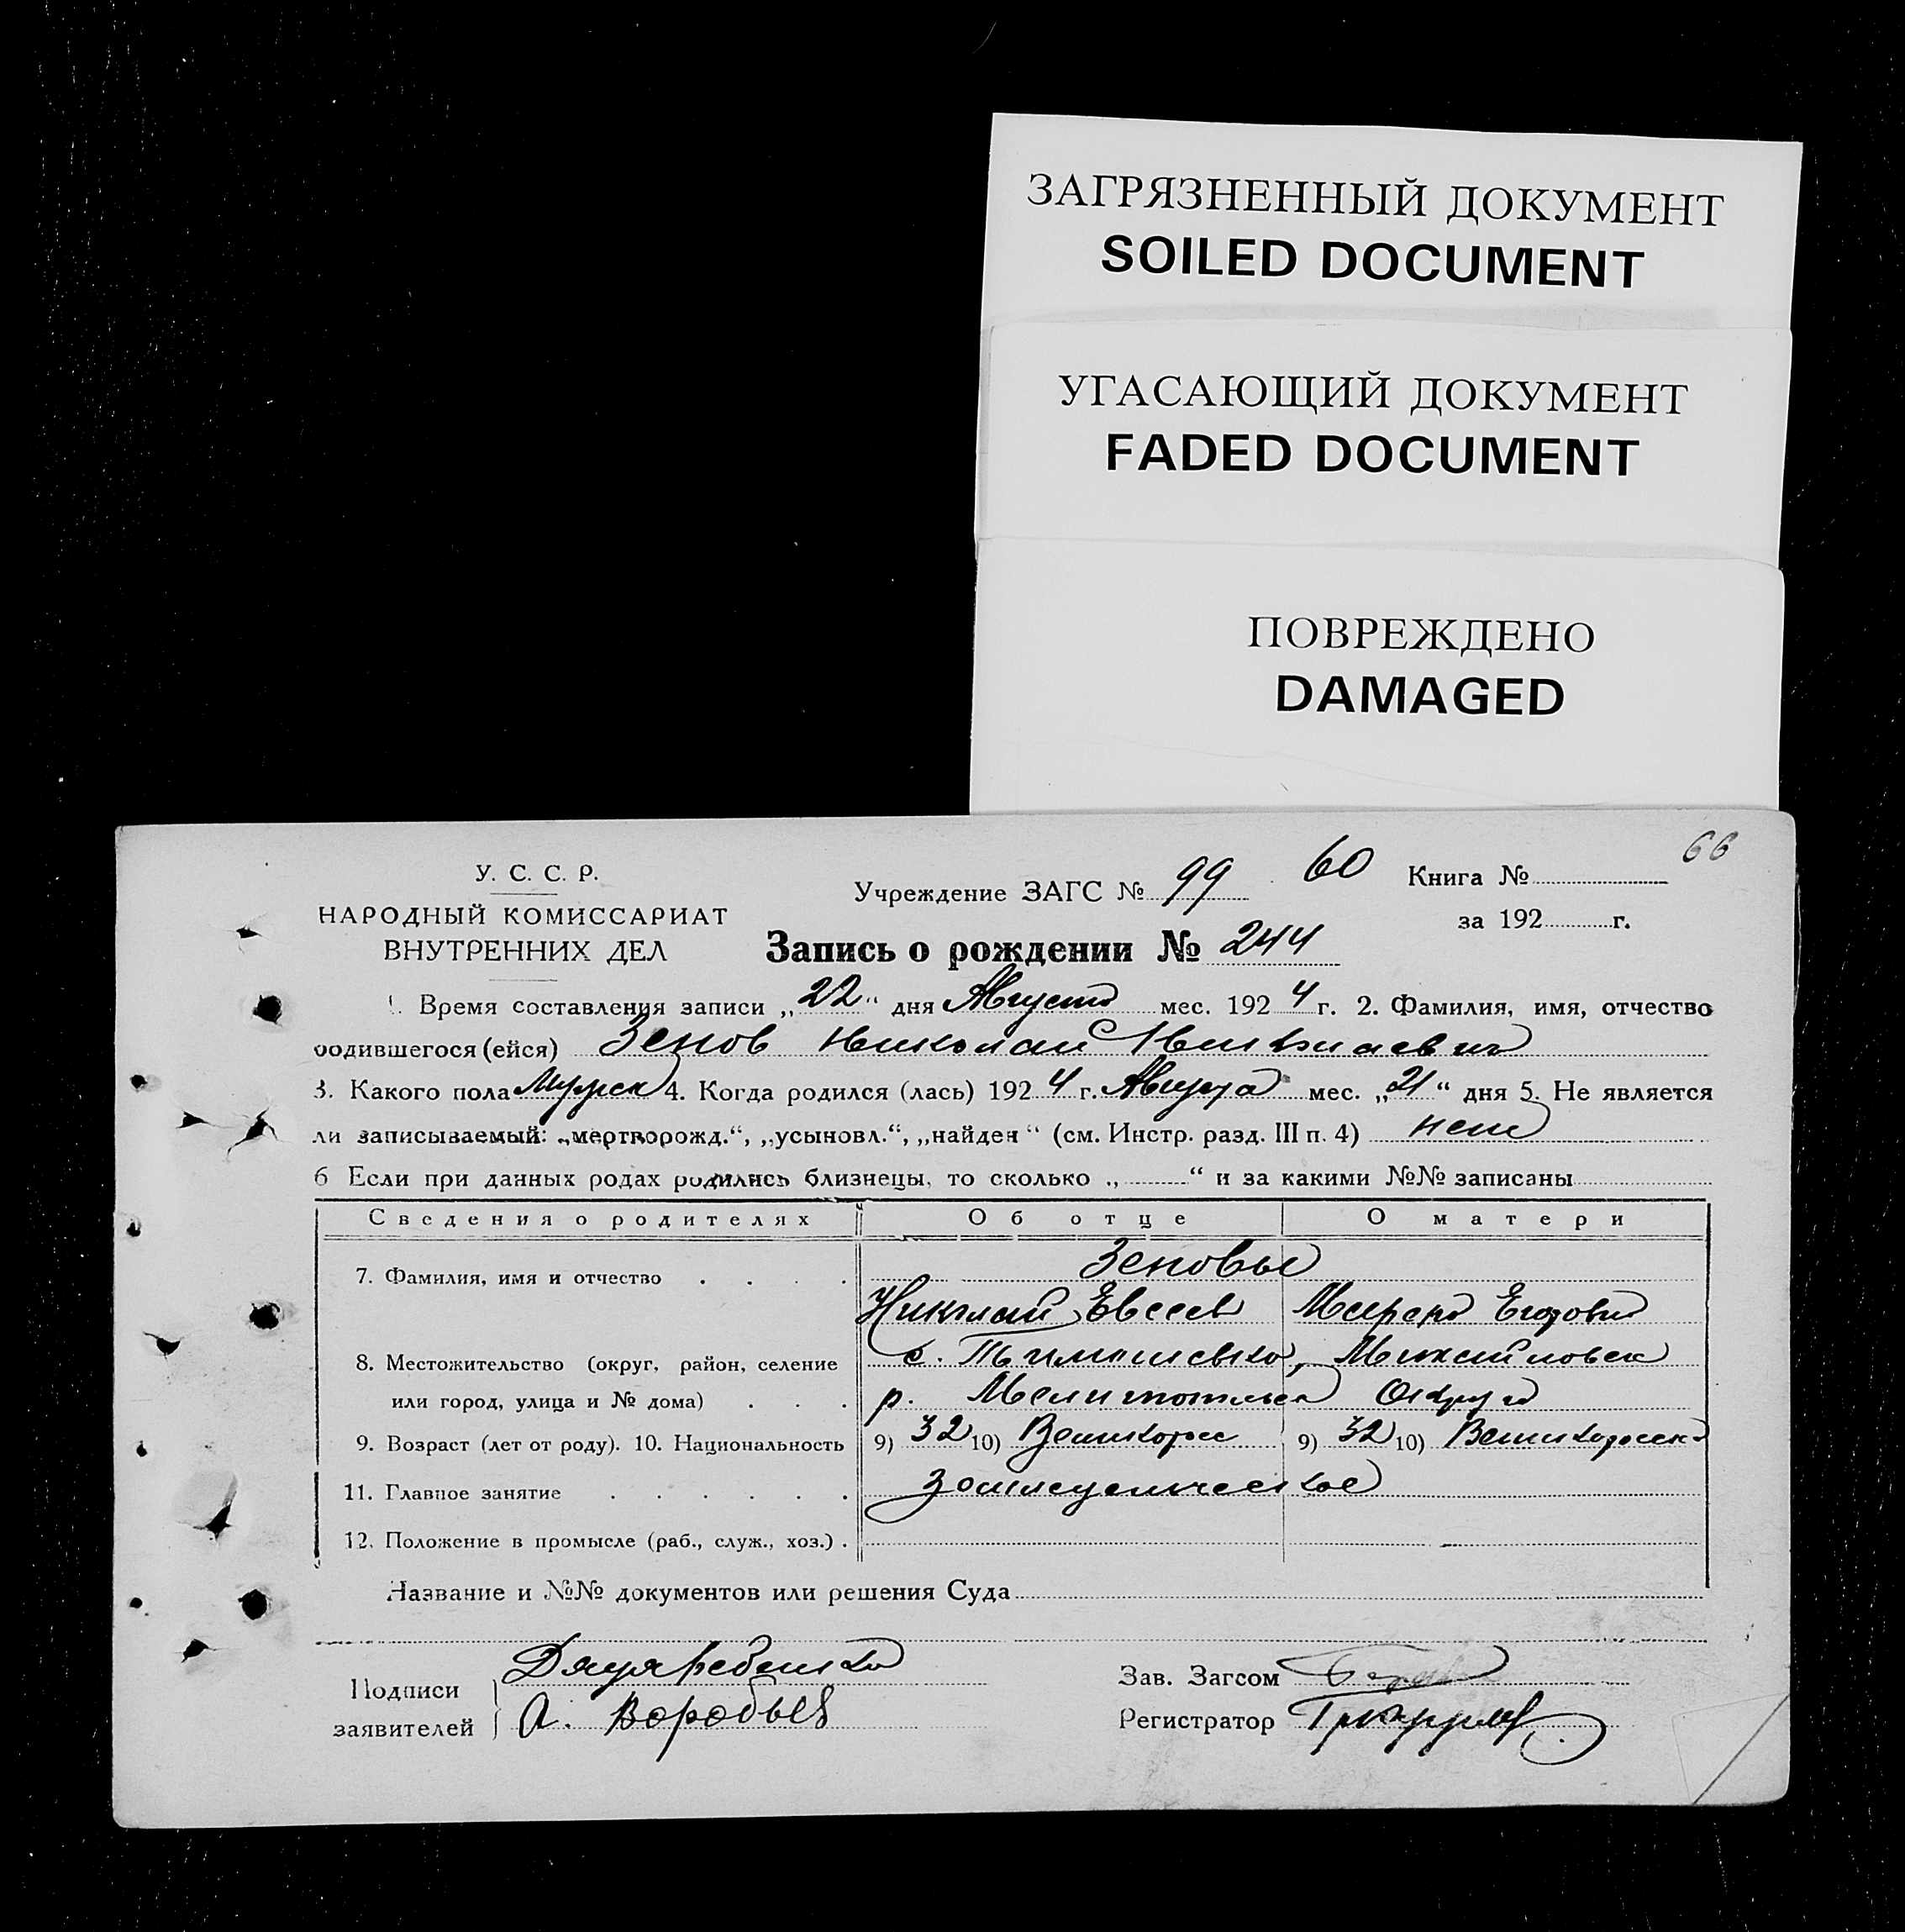 ЗАГРЯЗНЕННЫЙ ДОКУМЕНТ
SOILED DOCUMENT
УГАСАЮЩИЙ ДОКУМЕНТ
FADED DOCUMENT
ПОВРЕЖДЕНО
DAMAGED
66
У. С. С. Р.
НАРОДНЫЙ КОМИССАРИАТ
ВНУТРЕННИХ ДЕЛ
Учреждение ЗАГС № 99 60 Книга №
за 192 г.
Запись о рождении № 244
1. Время составления записи „22“ дня Августа мес. 1924 г. 2. Фамилия, имя, отчество
родившегося (ейся) Зенов Николай Николаевич
3. Какого пола Мужск 4. Когда родился (лась) 1924 г. Августа мес. „21“ дня 5. Не является
ли записываемый: „мертворожд.“, „усыновл.“, „найден“ (см. Инстр. разд. III п. 4) нет
6 Если при данных родах родились близнецы, то сколько „ “ и за какими №№ записаны
Сведения о родителях Об отце О матери
7. Фамилия, имя и отчество Зеновы
Николай Евсеев Егоровна
8. Местожительство (округ, район, селение с. Тимошевка, Михайловск
или город, улица и № дома) р. Мелитопольск Округа
9. Возраст (лет от роду). 10. Национальность 9) 32 10) Великоросс 9) 32 10) Великоросска
11. Главное занятие
12. Положение в промысле (раб., служ., хоз.)
Название и №№ документов или решения Суда
Подписи заявителей Дядя ребенка
А. Воробьев
Зав. Загсом
Регистратор